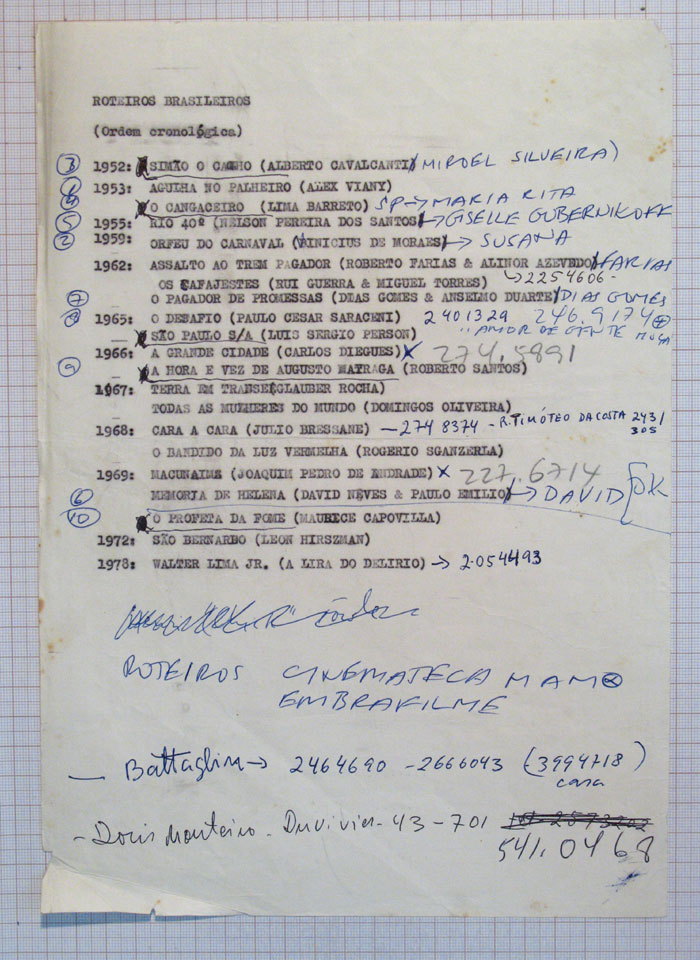 ROTEIROS BRASILEIROS
(Ordem cronológica)
3 1952: SIMÃO O CAOHO (ALBERTO CAVALCANTI) MIROEL SILVEIRA)
1953: AGULHA NO PALHEIRO (ALEX VIANY)
O CANGACEIRO (LIMA BARRETO) SP → MARIA RITA
5 1955: RIO 40º (NELSON PEREIRA DOS SANTOS) → GISELLE GUBERNIKOFF
2 1959: ORFEU DO CARNAVAL (VINICIUS DE MORAES) → SUSANA
1962: ASSALTO AO TREM PAGADOR (ROBERTO FARIAS & ALINOR AZEVEDO) FARIAS
OS CAFAJESTES (RUI GUERRA & MIGUEL TORRES) → 2254606-
7 O PAGADOR DE PROMESSAS (DIAS GOMES & ANSELMO DUARTE) DIAS GOMES
8 1965: O DESAFIO (PAULO CESAR SARACENI) 2401329 246.9174
SÃO PAULO S/A (LUIS SERGIO PERSON) "AMOR DE GENTE MOÇA
1966: A GRANDE CIDADE (CARLOS DIEGUES) x 274.5891
9 A HORA E VEZ DE AUGUSTO MATRAGA (ROBERTO SANTOS)
1967: TERRA EM TRANSE(GLAUBER ROCHA)
TODAS AS MULHERES DO MUNDO (DOMINGOS OLIVEIRA)
1968: CARA A CARA (JULIO BRESSANE) — 274 8374 - R. TIMÓTEO DA COSTA 243/305
O BANDIDO DA LUZ VERMELHA (ROGERIO SGANZERLA)
1969: MACUNAIMA (JOAQUIM PEDRO DE ANDRADE) x 227.6714
6 MEMORIA DE HELENA (DAVID NEVES & PAULO EMILIO) → DAVID OK
10 O PROFETA DA FOME (MAURECE CAPOVILLA)
1972: SÃO BERNARDO (LEON HIRSZMAN)
1978: WALTER LIMA JR. (A LIRA DO DELIRIO) → 2.054493
ROTEIROS CINEMATECA MAM
EMBRAFILME
— Battaglin → 2464690 - 2666043 (3994718)
casa
- Doris Monteiro - Duvivier - 43 - 701
541.0468